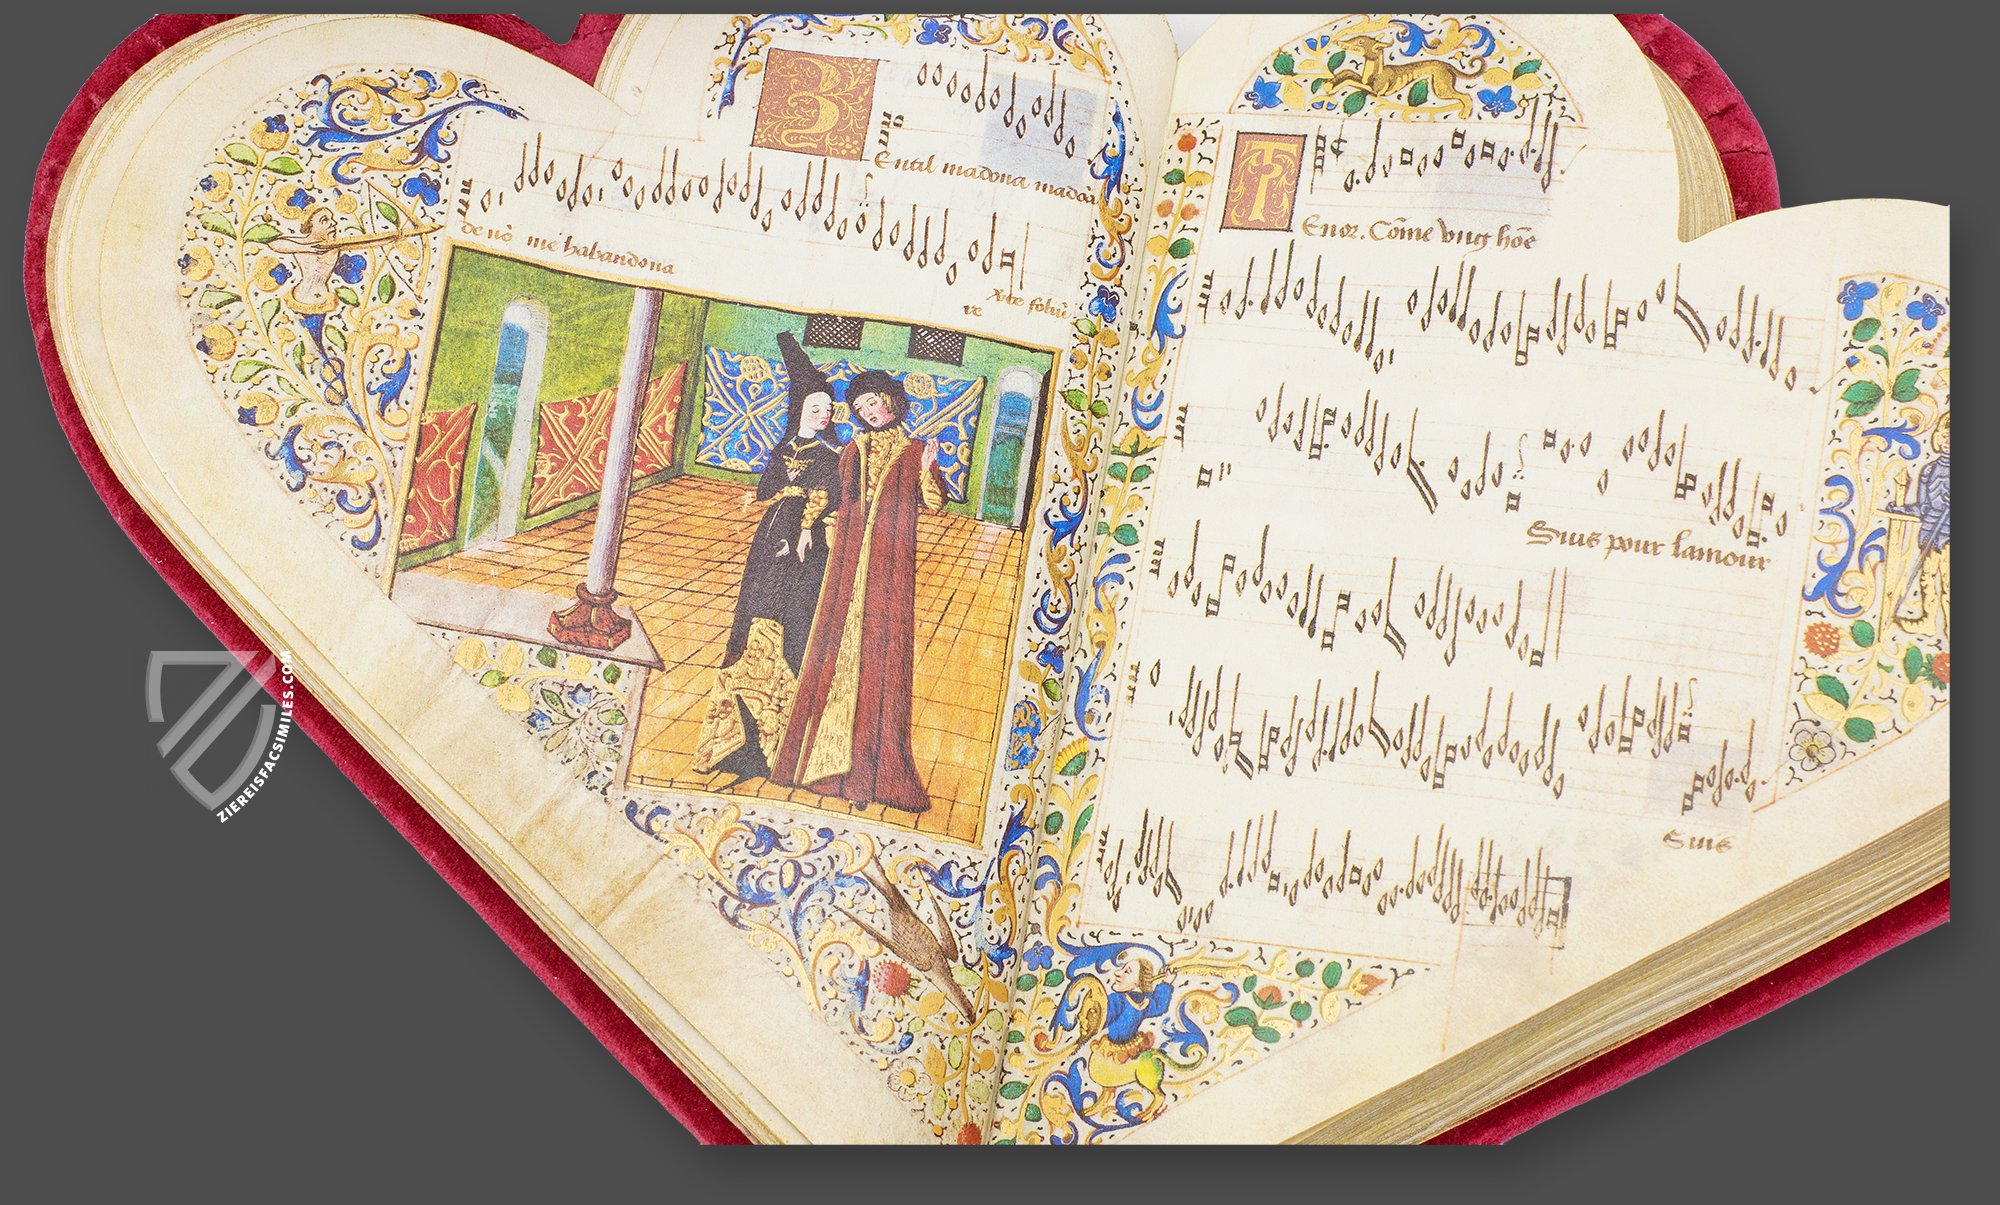 Entil madona madoā
de nō me habandona
xvte foliū
re
T
Enor. Cōme vng hōe
Suis pour lamour
Suis
ZIEREISFACSIMILES.COM